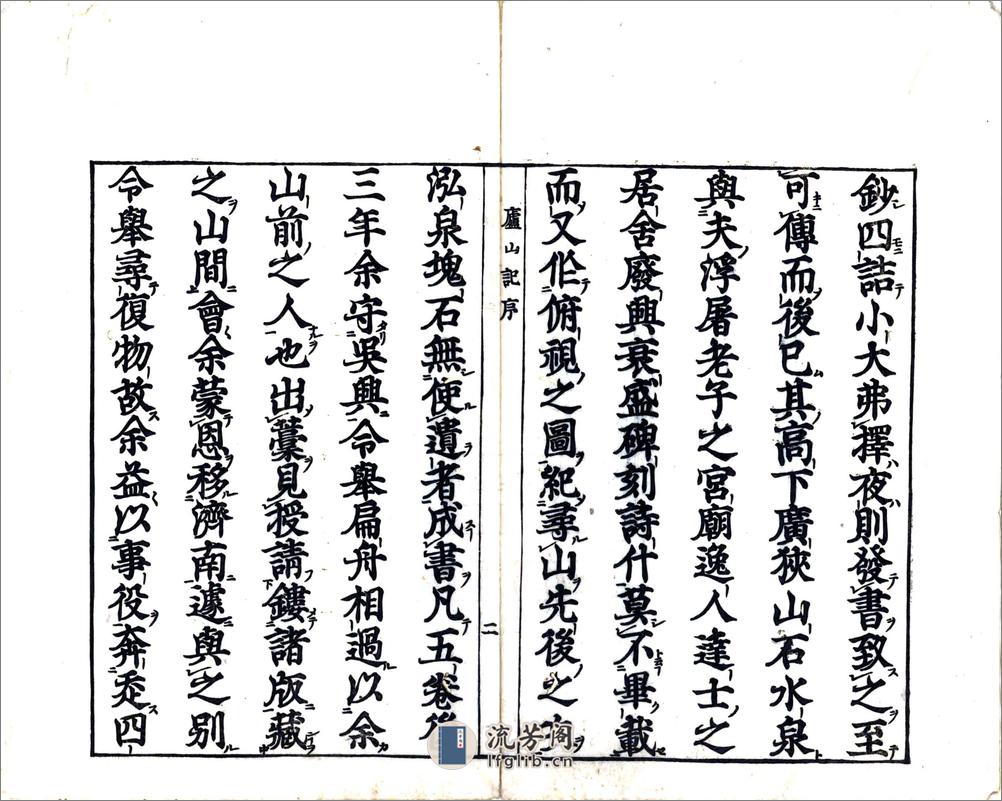 鈔四詰小大弗擇夜則發書致之至
可傳而後已其高下廣狹山石水泉
與夫浮屠老子之宮廟逸人達士之
居舍廢興衰盛碑刻詩什莫不畢載
而又作俯視之圖紀尋山先後之
廬山記序
二
泓泉塊石無使遺者成書凡五卷後
三年余守吳興令舉扁舟相過以余
山前之人也出藁見授請鏤諸版藏
之山間會余蒙恩移濟南遽與之別
令舉尋復物故余益以事役奔忝四
流芳阁
lfglib.cn